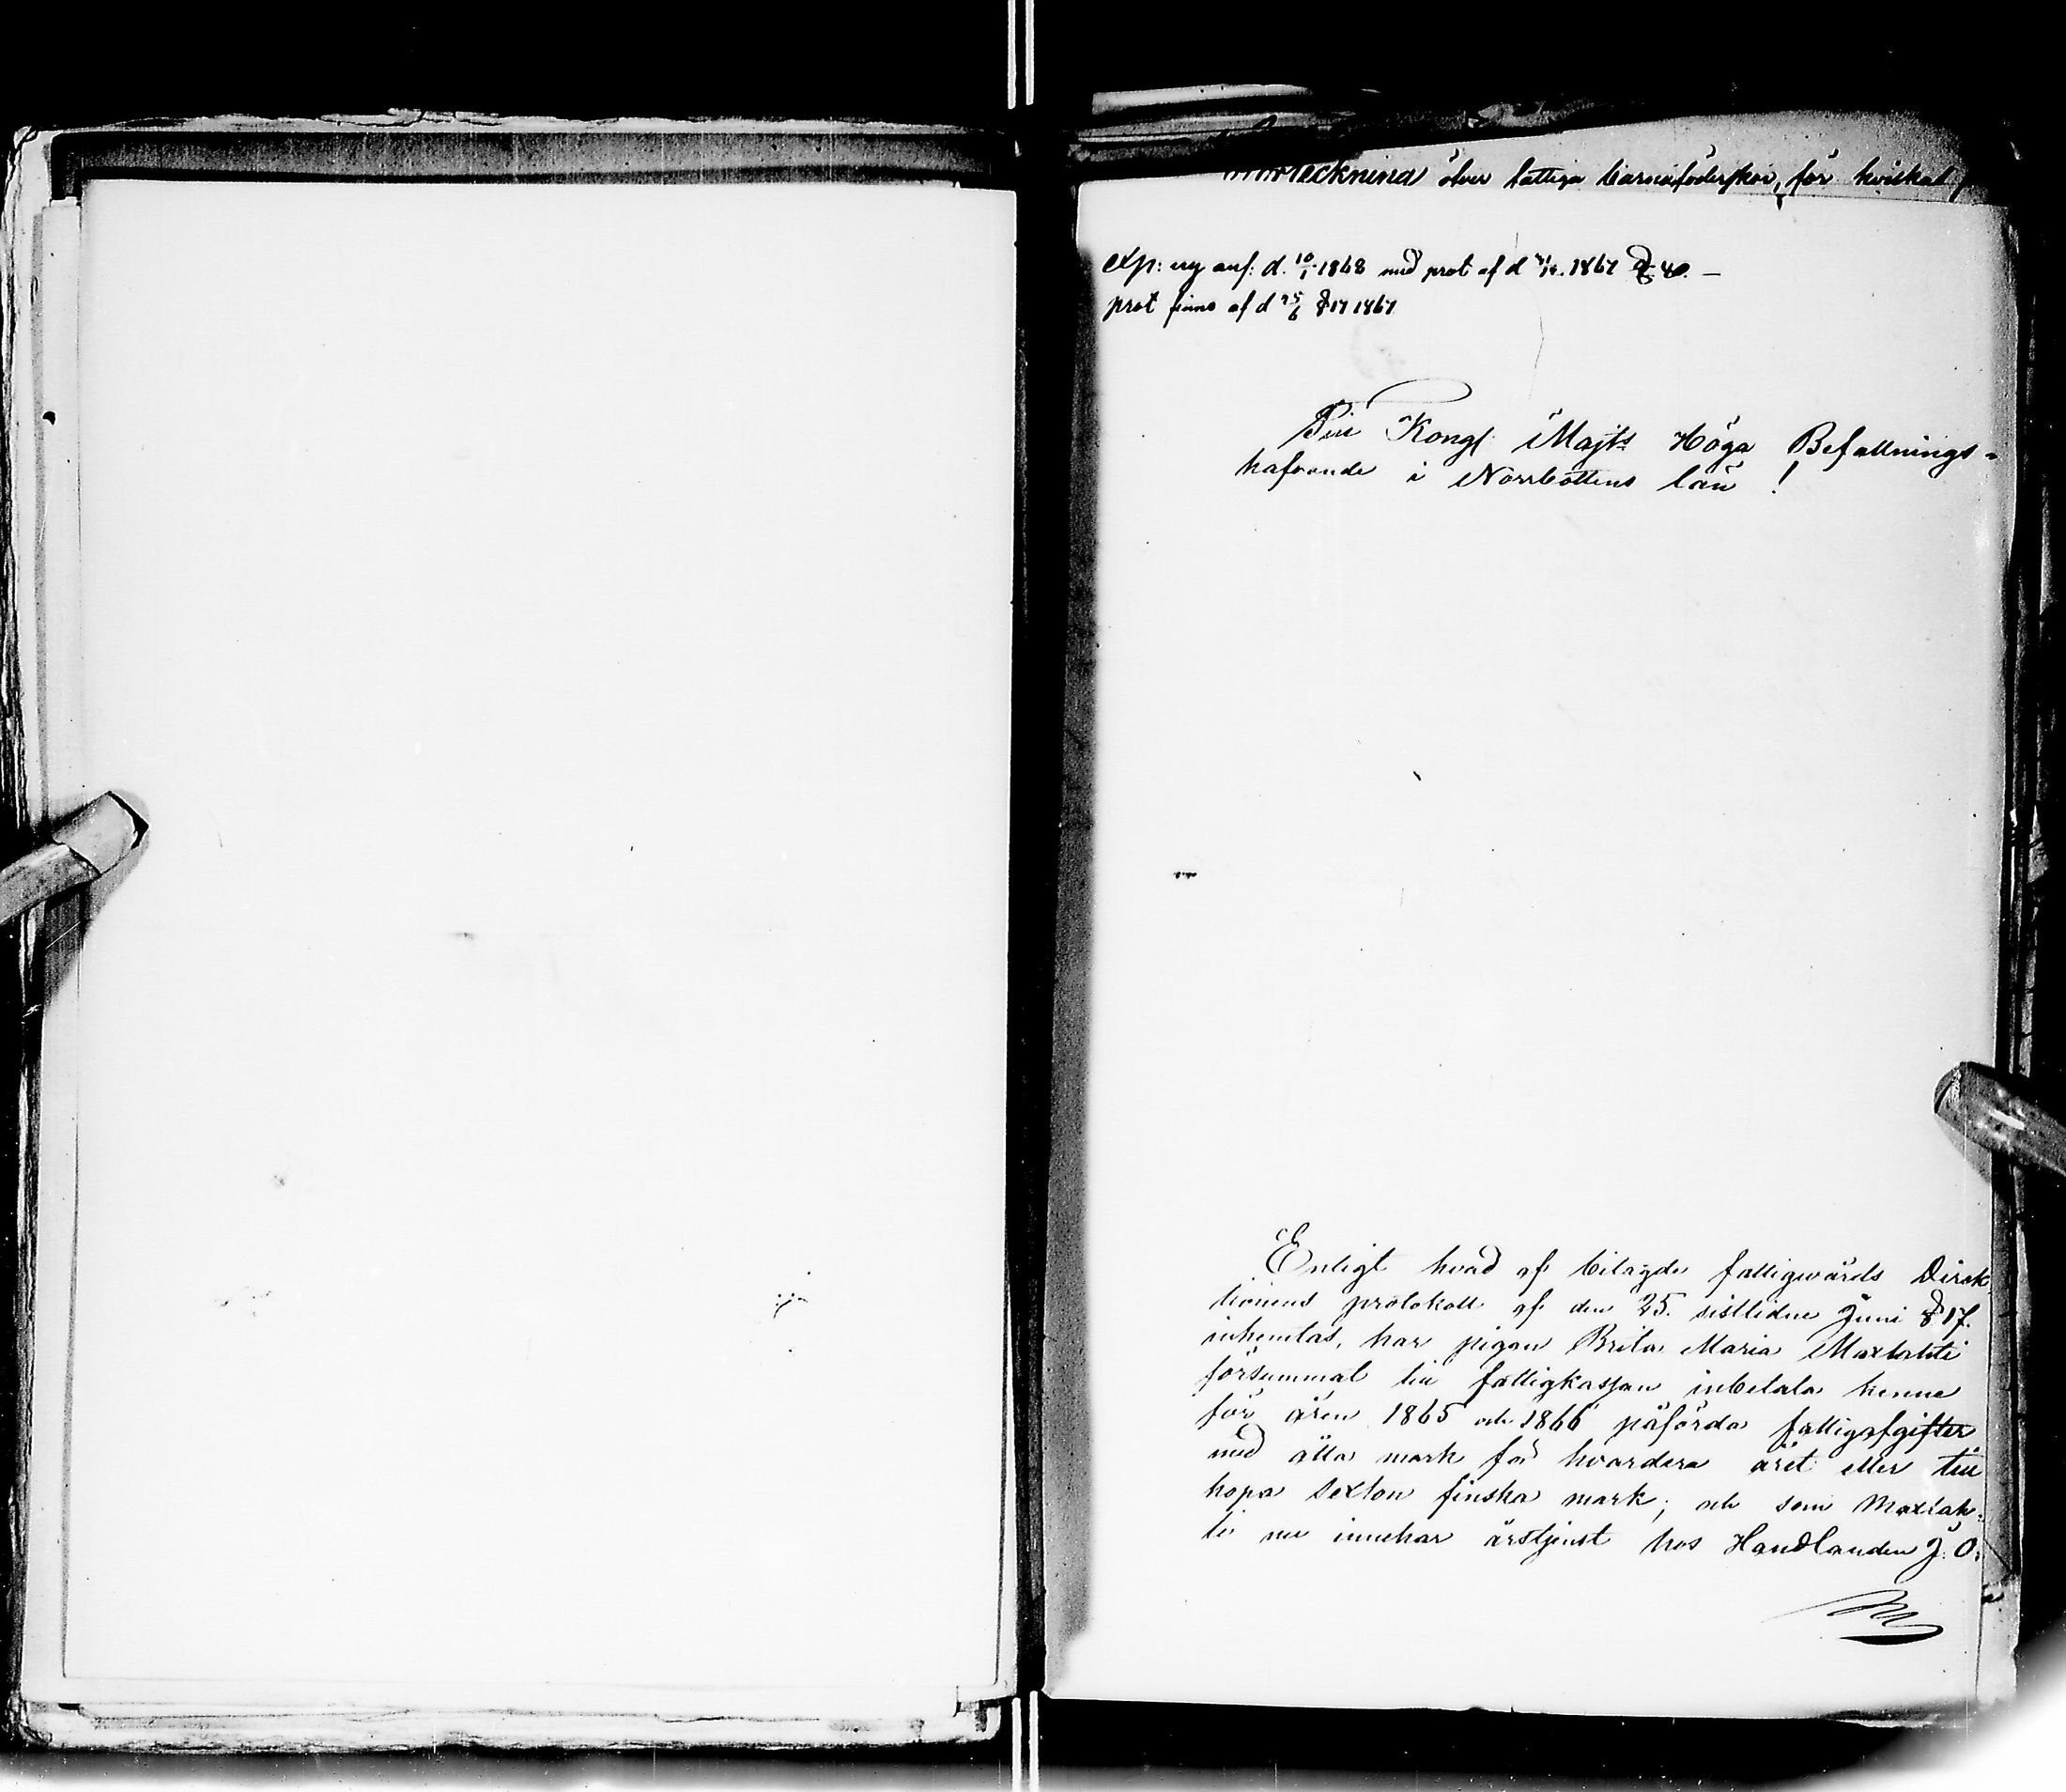 Förteckning öfver fattiga barnaföderskor, för hvilkas
exp: ny anf: d. 10/1 1868 med prot af d 31/12. 1867 § 40. —
prot finns af d 25/6 § 17 1867
Till Kongl. Majts Höga Befallnings-
hafvande i Norrbottens län!
Enligt hvad af bilagde fattigvårds Direk
tionens protokoll af den 25. sistlidne Juni § 17.
inhemtas, har pigan Brita Maria Maxlahti
försummat till fattigkassan inbetala henne
för åren 1865 och 1866 påförda fattigafgifter
med åtta mark för hvardera året eller till
hopa sexton finska mark; och som Maxlah-
ti nu innehar årstjenst hos Handlanden J. O.